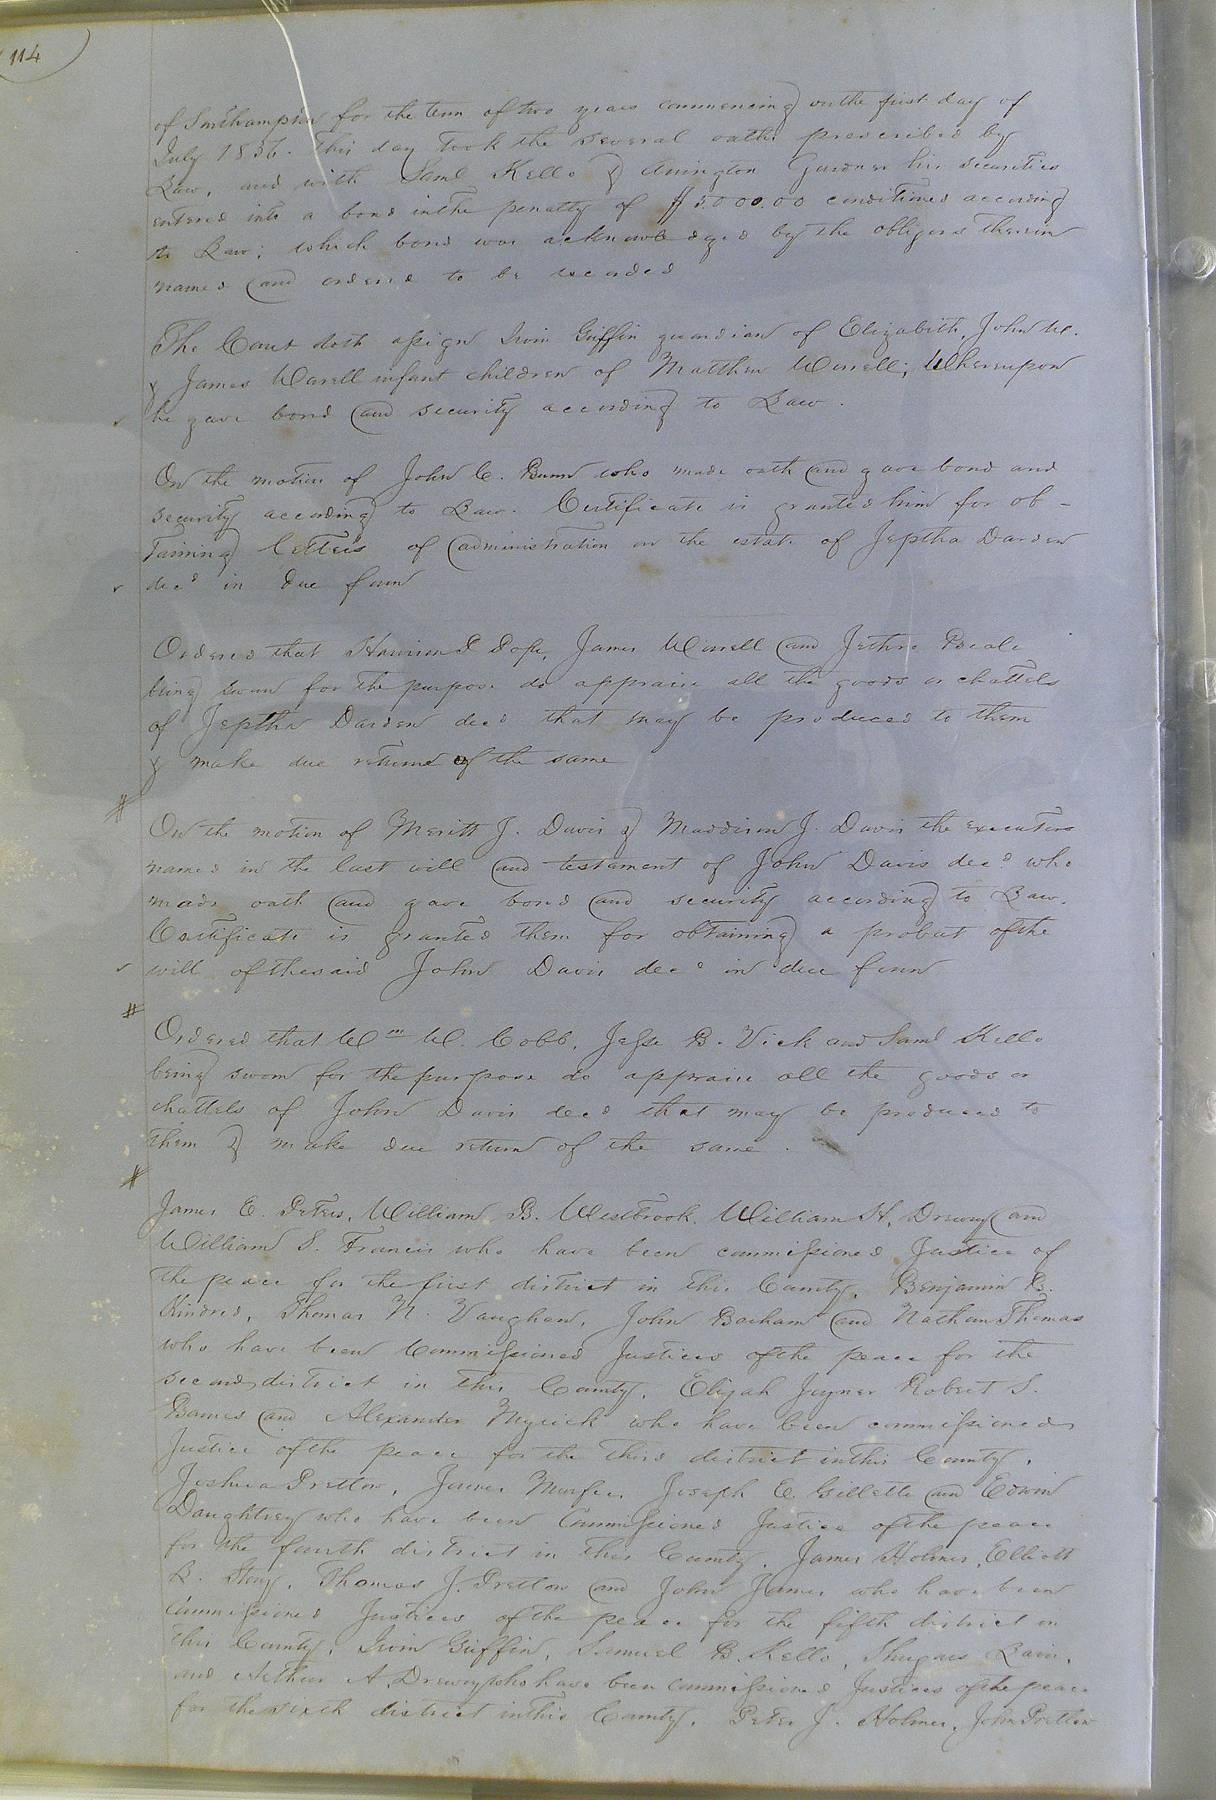 114
of Southampton for the term of two years commencing on the first day of
July 1856. this day took the several oaths prescribed by
Law, and with Saml Kello & Arington Gardner his securities
entered into a bond in the penalty of $ 5.000.00 conditioned according
to Law; which bond was acknowledged by the obligors therein
named and ordered to be recorded
The Court doth assign Irvin Griffin guardian of Elizabeth, John W.
& James Worrell infant children of Matthew Worrell; Whereupon
he gave bond and security according to Law.
On the motion of John C. Bunn who made oath and gave bond and
security according to Law. Certificate is granted him for ob-
taining letters of administration on the estate of Jeptha Darden
decd in due form
Ordered that Harrison P Pope, James Worrell and Jethro Beale
being sworn for the purpose do appraise all the goods or chattels
of Jeptha Darden decd that may be produced to them
& make due return of the same
#
On the motion of Meritt J. Davis & Maddison J. Davis the executors
named in the last will and testament of John Davis decd who
made oath and gave bond and security according to Law.
Certificate is granted them for obtaining a probat of the
will of the said John Davis decd in due form
#
Ordered that Wm W. Cobb, Jesse B. Vick and Saml Kello
being sworn for the purpose do appraise all the goods or
chattels of John Davis decd that may be produced to
them & make due return of the same.
#
James E. Peters, William B. Westbrook, William H. Drewry and
William S. Francis who have been commissioned Justice of
the peace for the first district in this County, Benjamin B.
Kindred, Thomas N. Vaughan, John Barham and Nathan Thomas
who have been Commissioned Justices of the peace for the
second district in this County, Elijah Joyner Robert S.
Barnes and Alexander Myrick who have been commissioned
Justice of the peace for the third district in this County,
Joshua Pretlow, James Murfee, Joseph E. Gillette and Edwin
Daughtrey who have been Commissioned Justice of the peace
for the fourth district in this County, James Holmes, Elliott
L. Story, Thomas J. Pretlow and John James who have been
Commissioned Justices of the peace for the fifth district in
this County, Irvin Griffin, Samuel B. Kello, Lain,
and Arthur A. Drewry who have been commissioned Justices of the peace
for the sixth district in this County, Peter J. Holmes, John Pretlow